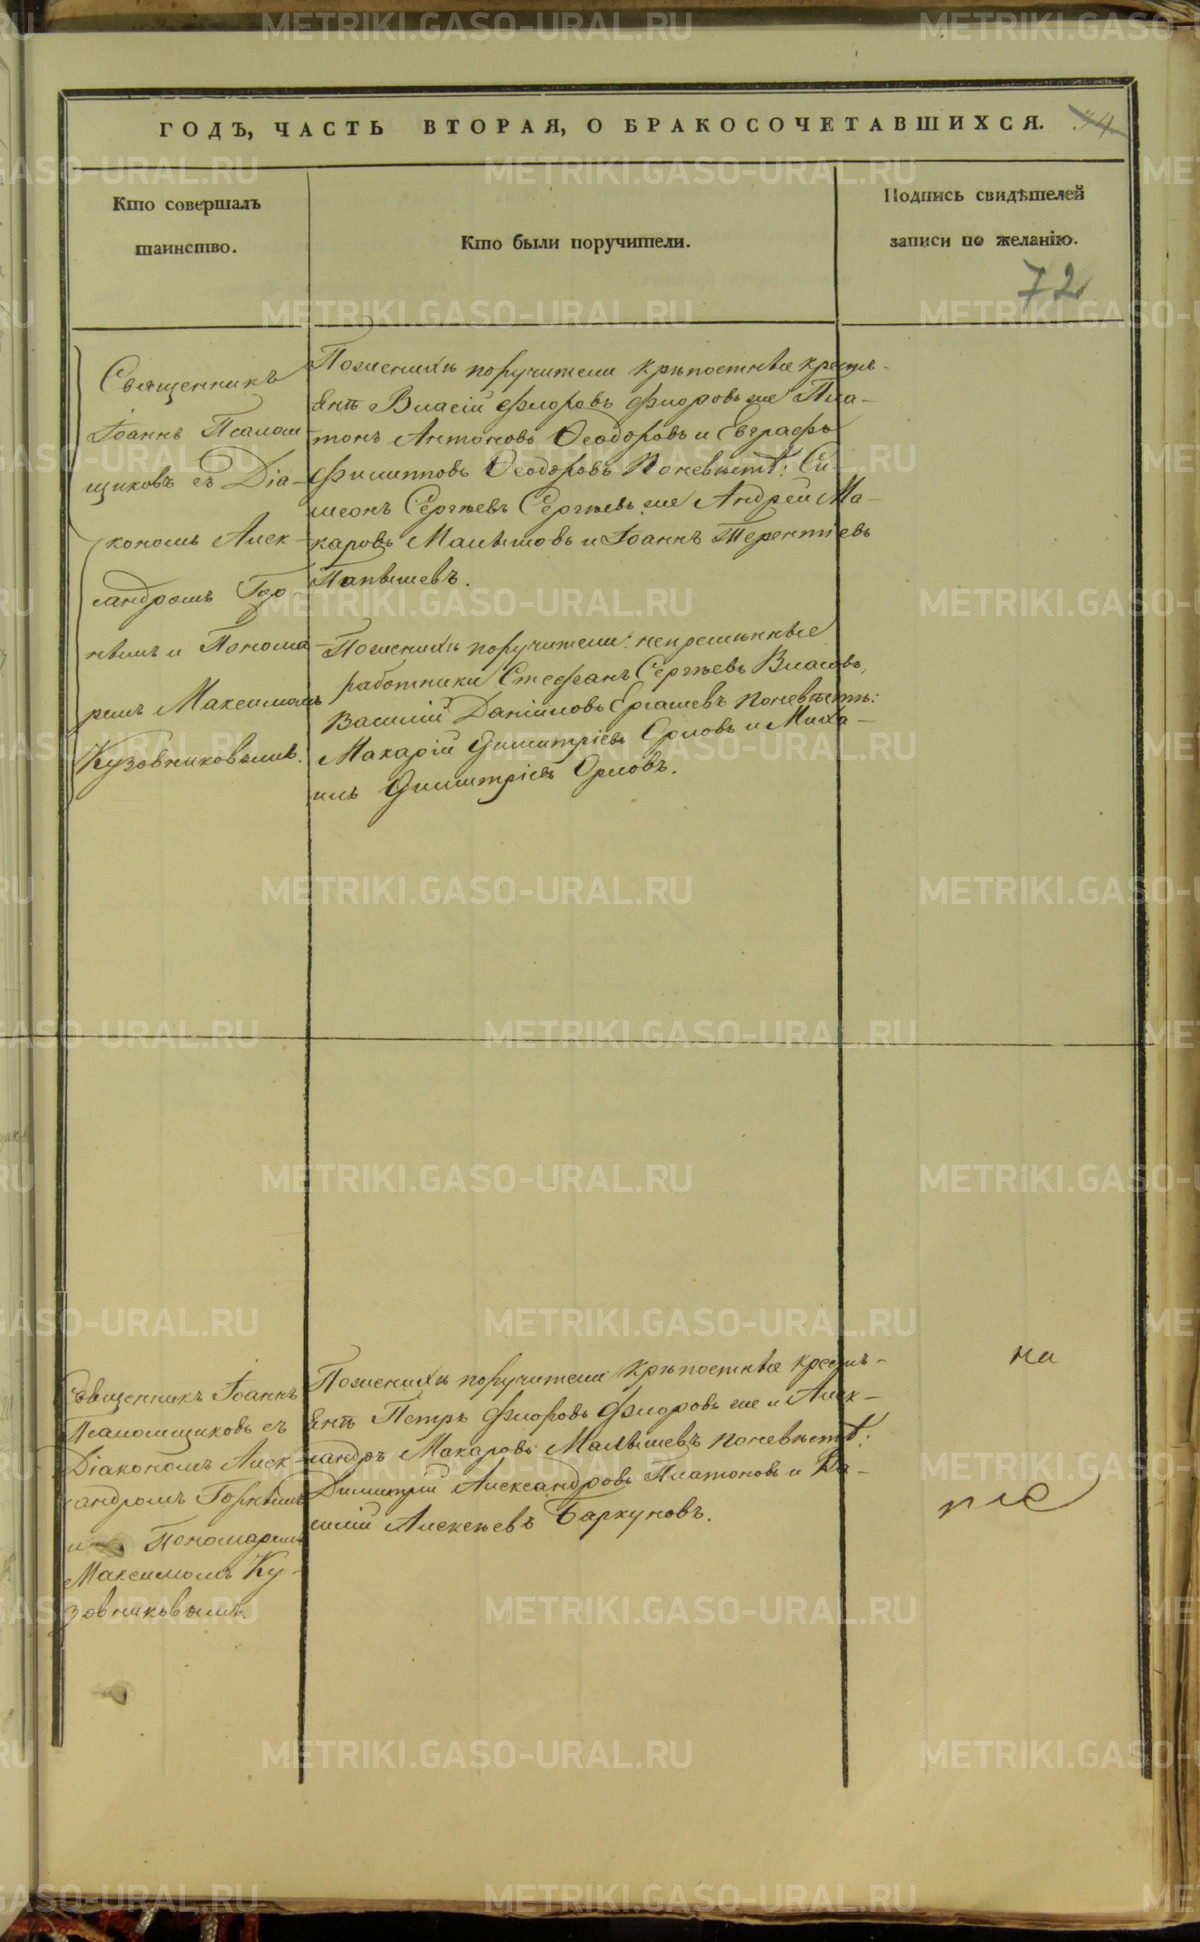 ГОДЪ, ЧАСТЬ ВТОРАЯ, О БРАКОСОЧЕТАВШИХСЯ. 34
Кто совершалъ
таинство.
Кто были поручители.
Подпись свидѣтелей
записи по желанію.
72
Священникъ
Іоаннъ Псалом
щиковъ съ Діа-
кономъ Алек-
сандромъ Гор-
нымъ и Понома
ремъ Максимомъ
Кузовниковымъ.
По женихѣ поручители крѣпостные кресть-
янѣ Власій Флоровъ Флоровъ же Пла-
тонъ Антоновъ Ѳеодоровъ и Евграфъ
Филипповъ Ѳеодоровъ по невѣстѣ: Си-
меонъ Сергѣевъ Сергѣевъ же Андрей Ма-
каровъ Малышовъ и Іоаннъ Терентіевъ
По женихѣ поручители: непремѣнные
работники Стефанъ Сергѣевъ Власовъ,
Василій Даніиловъ по невѣстѣ:
Макарій Димитріевъ Орловъ и Миха-
илъ Димитріевъ Орловъ.
Священникъ Іоаннъ
Псаломщиковъ съ
Діакономъ Алек-
сандромъ Горнымъ
и Пономаремъ
Максимомъ Ку-
зовниковымъ.
По женихѣ поручители крѣпостные кресть-
янѣ Петръ Флоровъ Флоровъ же и Алек-
сандръ Макаровъ Малышевъ по невѣстѣ:
Димитрій Александровъ Платоновъ и Ва-
силій Алексѣевъ Баркуновъ.
на